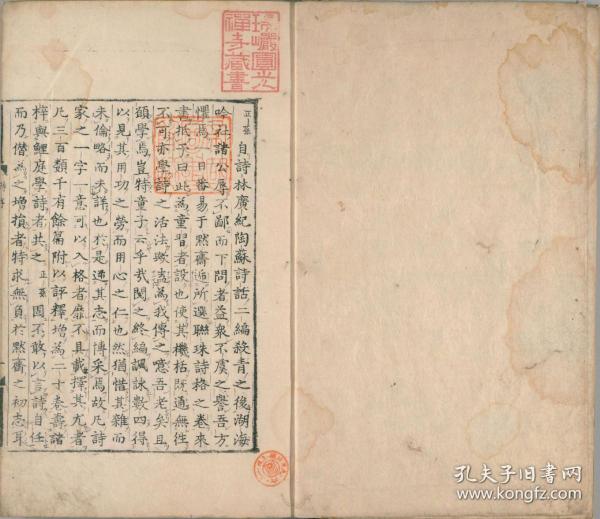 正孫自詩林廣紀陶蘇詩話二編殺青之後湖海
吟社諸公辱不鄙而下問者益衆不虞之譽吾方
懼焉一日番易于默齋遞所選聯珠詩格之卷來
書抵予曰此為童習者設也使其機括既通無往
不可亦學詩之活法歟盍為我傳之噫吾老矣且
碩學焉豈特童子云乎哉閱之終編諷詠數四得
以見其用功之勞而用心之仁也然猶惜其雜而
未倫略而未詳也於是逑其志而博采焉故凡詩
家之一字一意可以入格者靡不具載擇其尤者
凡三百類千有餘篇附以評釋增為二十卷壽諸
梓與鯉庭學詩者共之正孫固不敢以言詩自任
而乃僭為之增損者特求無負於默齋之初志耳
瑞巖圓光
禪寺藏書
孔夫子旧书网
www.kongfz.com